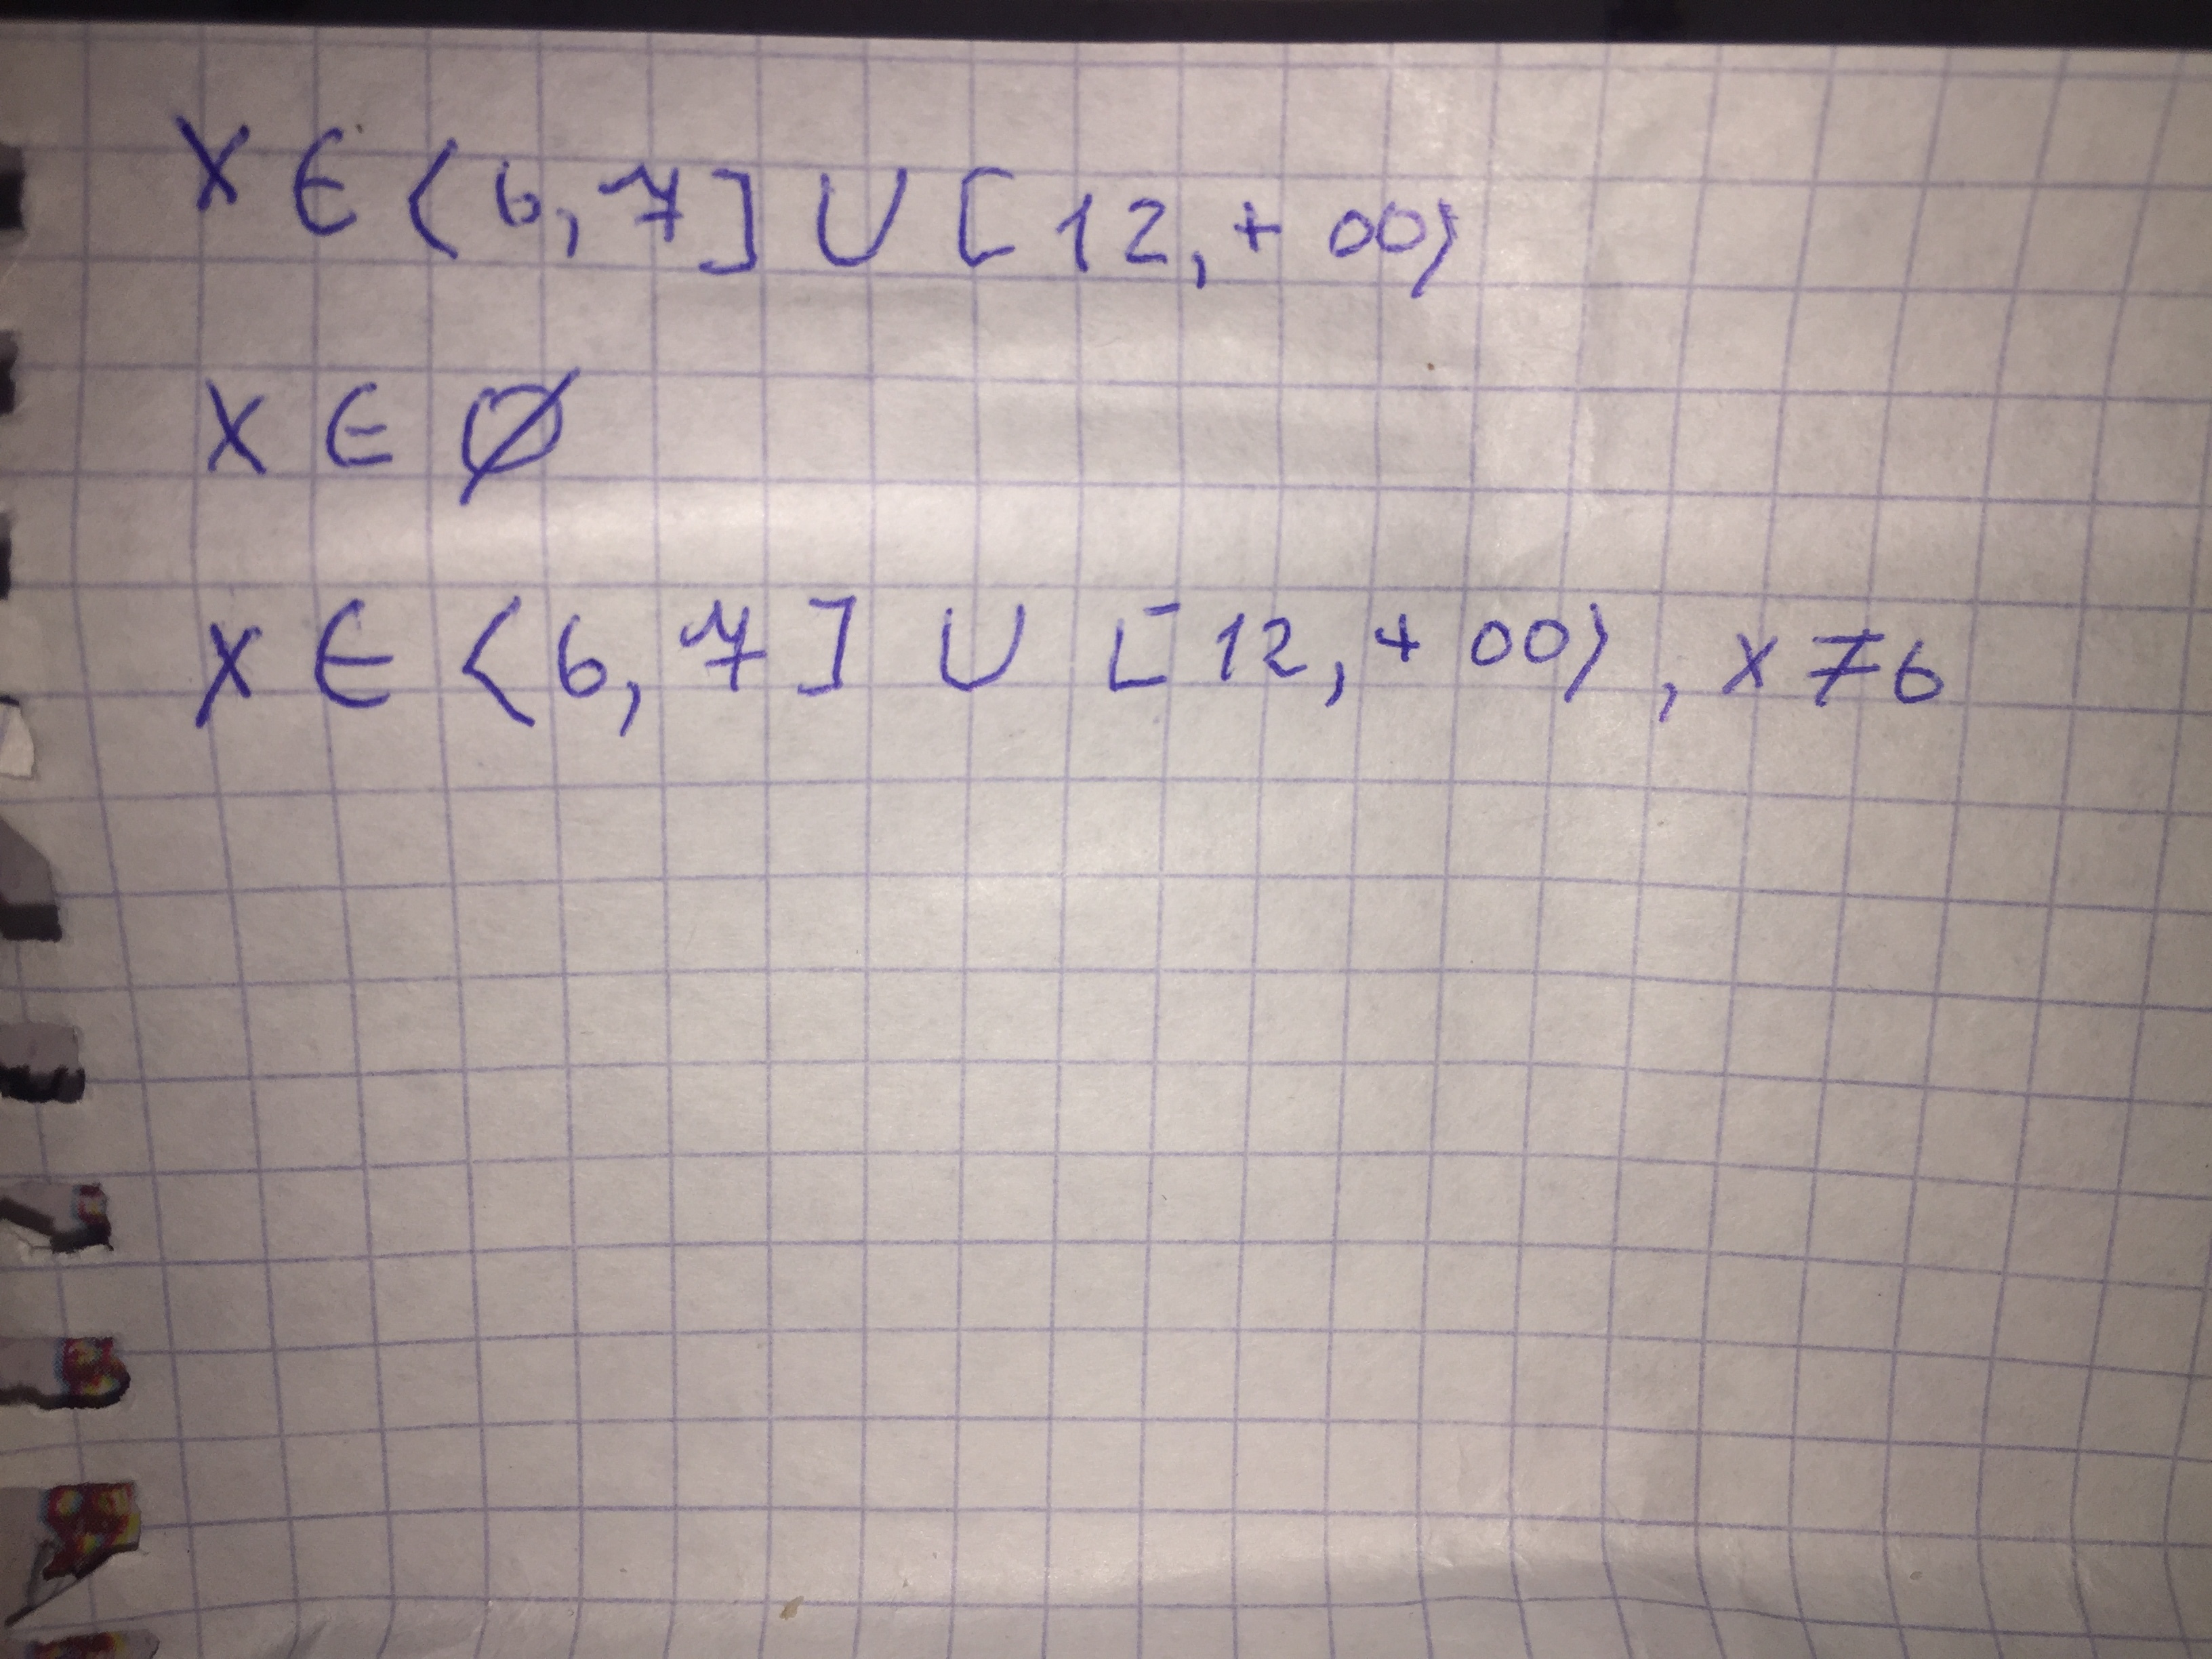 x ∈ ⟨6, 7] ∪ [12, +∞⟩
x ∈ ∅
x ∈ ⟨6, 7] ∪ [12, +∞⟩, x ≠ 6